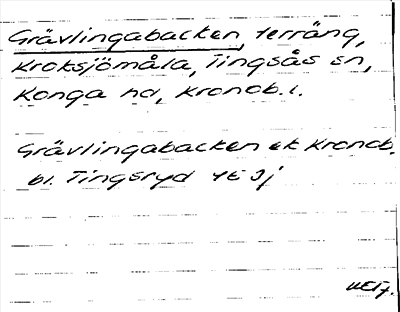 Grävlingabacken, terräng,
Kroksjömåla, Tingsås sn,
Konga hd, Kronob. l.
Grävlingabacken ek Kronob.
bl. Tingsryd 4E 9j